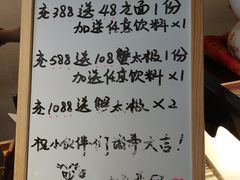 充388送48元面1份
加送任意饮料×1
充588送108蟹太极1份
加送任意饮料×1
充1088送蟹太极×2
祝小伙伴们